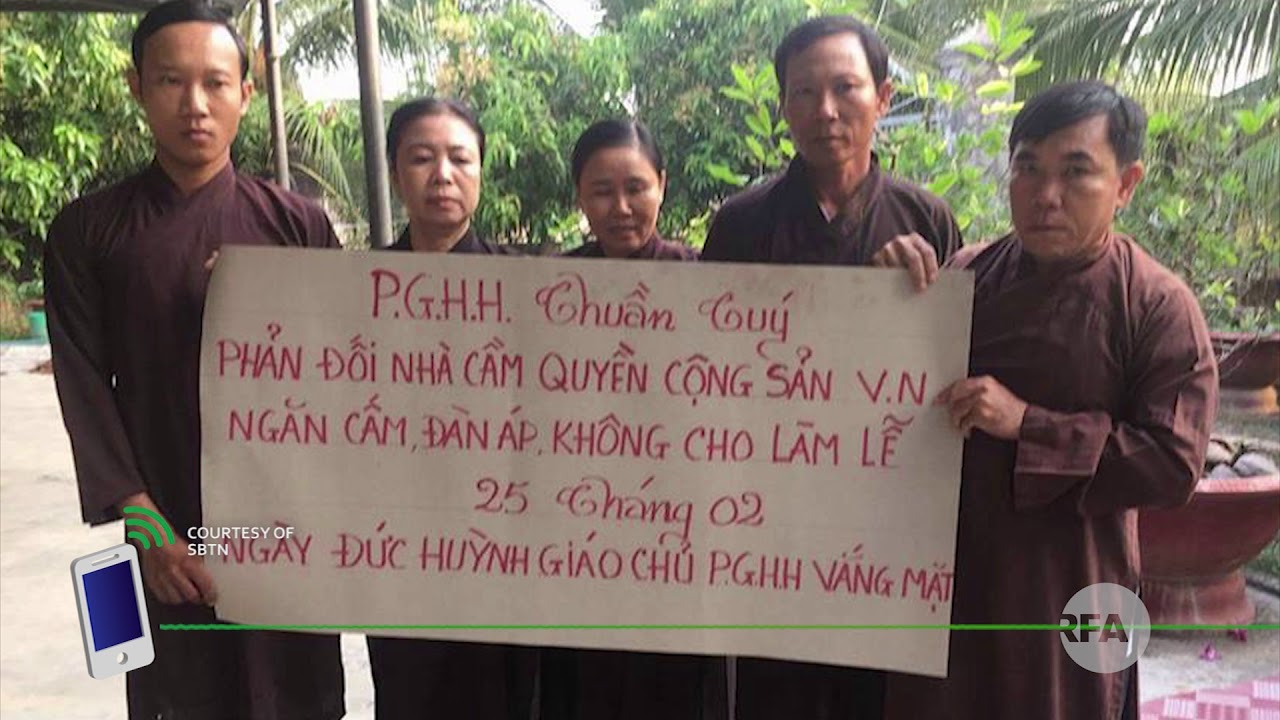 P.G.H.H. Thuần Tuý
PHẢN ĐỐI NHÀ CẦM QUYỀN CỘNG SẢN V.N
NGĂN CẤM, ĐÀN ÁP, KHÔNG CHO LÀM LỄ
25 Tháng 02
NGÀY ĐỨC HUỲNH GIÁO CHỦ P.G.H.H VẮNG MẶT
COURTESY OF
SBTN
RFA